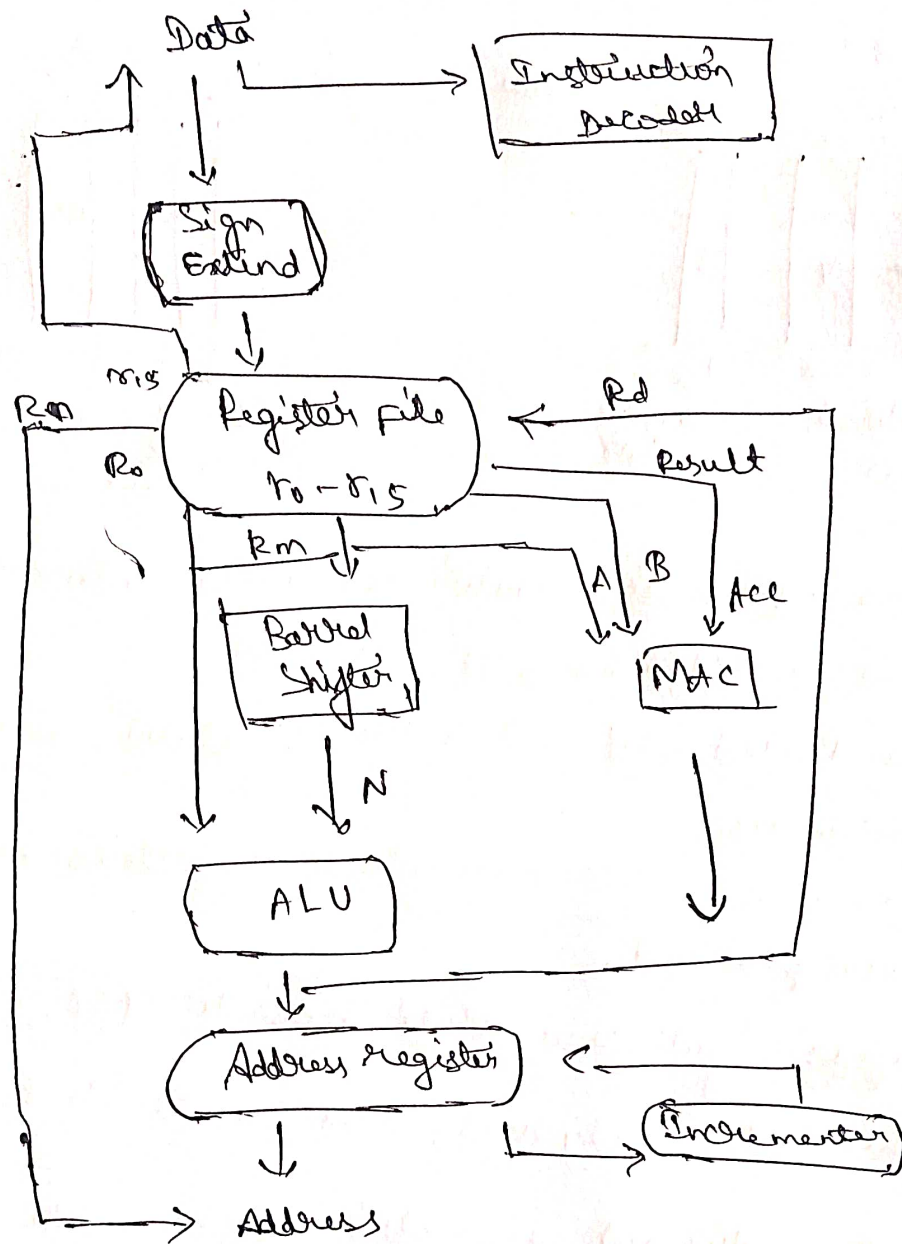 Data
Instruction
Decoder
Sign
Extind
r15
Rn
Register file
Rd
Ro
r0 - r15
Result
Rm
A
B
Acc
Barrel
Shifter
MAC
N
ALU
Address register
Incrementer
Address